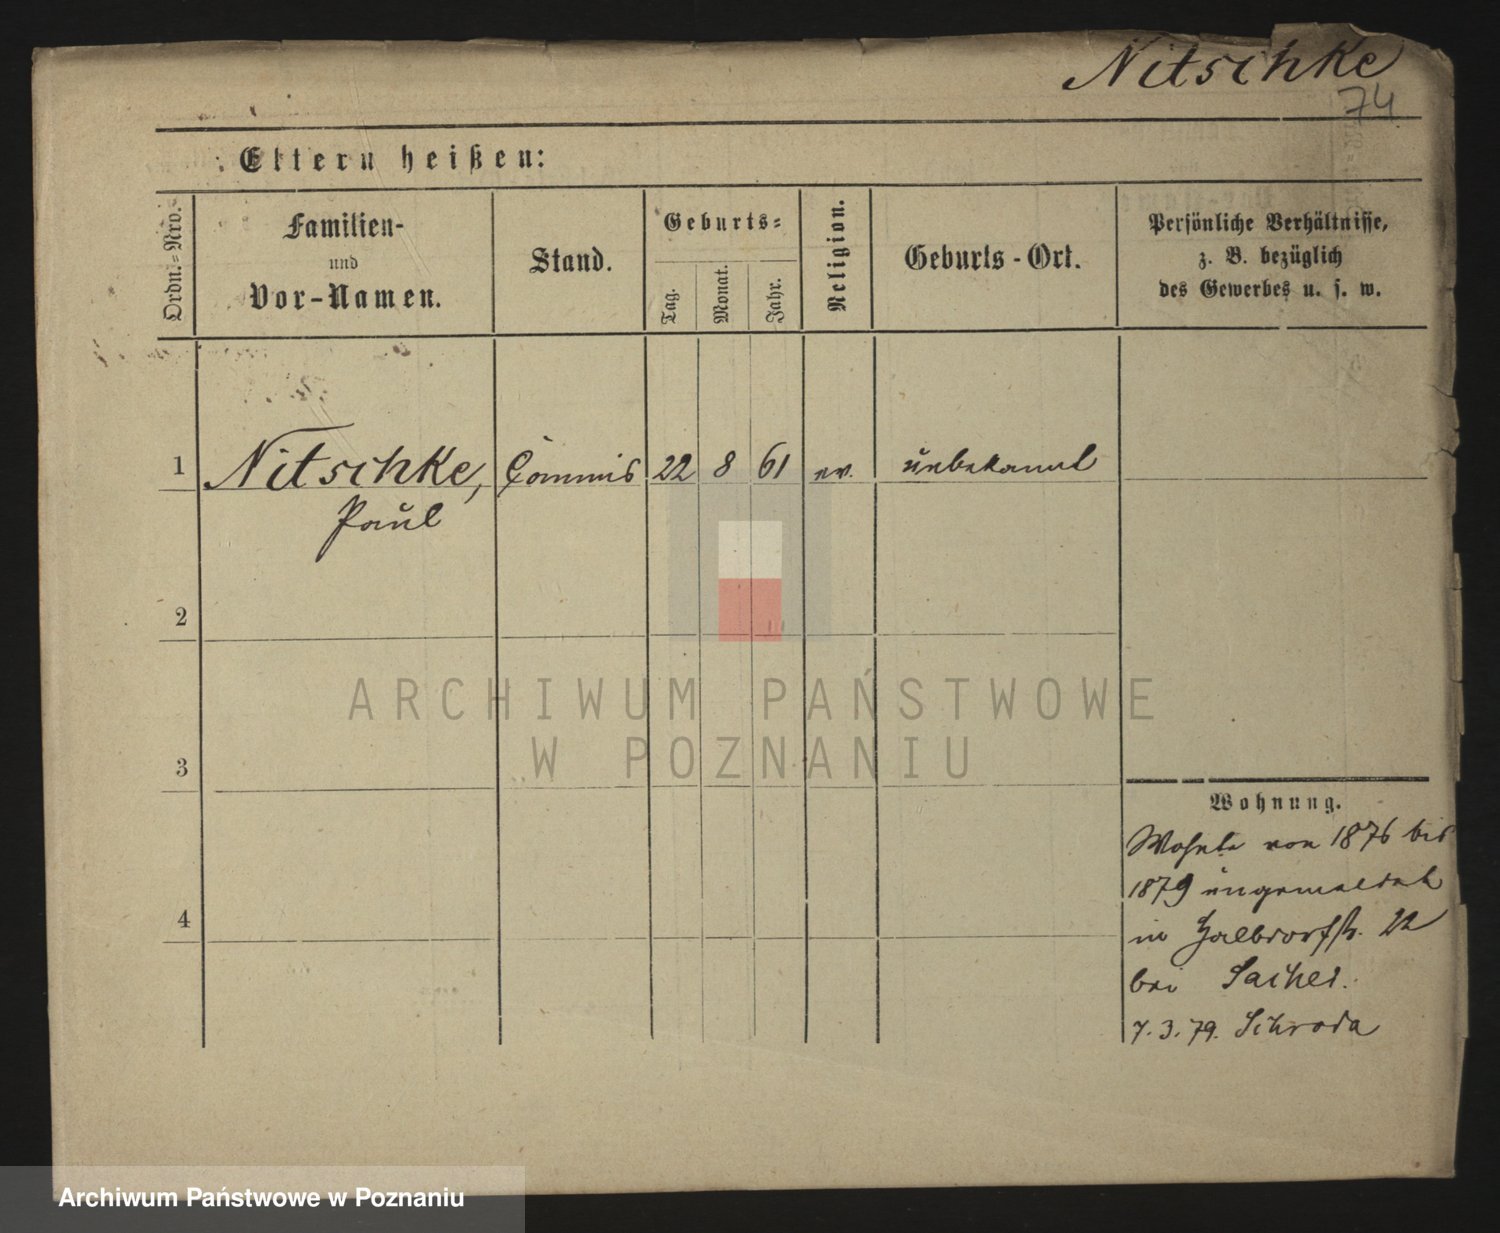 Nitschke
74
Eltern heißen:
Ordn.=Nro.
Familien-
und
Vor-Namen.
Stand.
Geburts=
Tag.
Monat.
Jahr.
Religion.
Geburts-Ort.
Persönliche Verhältnisse,
z. B. bezüglich
des Gewerbes u. s. w.
1 Nitschke, Commis 22 8 61 ev. unbekannt
Paul
2
3
4
ARCHIWUM PAŃSTWOWE
W POZNANIU
Wohnung.
Wohnte von 1876 bis
1879 ungemeldet
in Halbdorfstr. 22
bei
7.3.79. Schroda
Archiwum Państwowe w Poznaniu